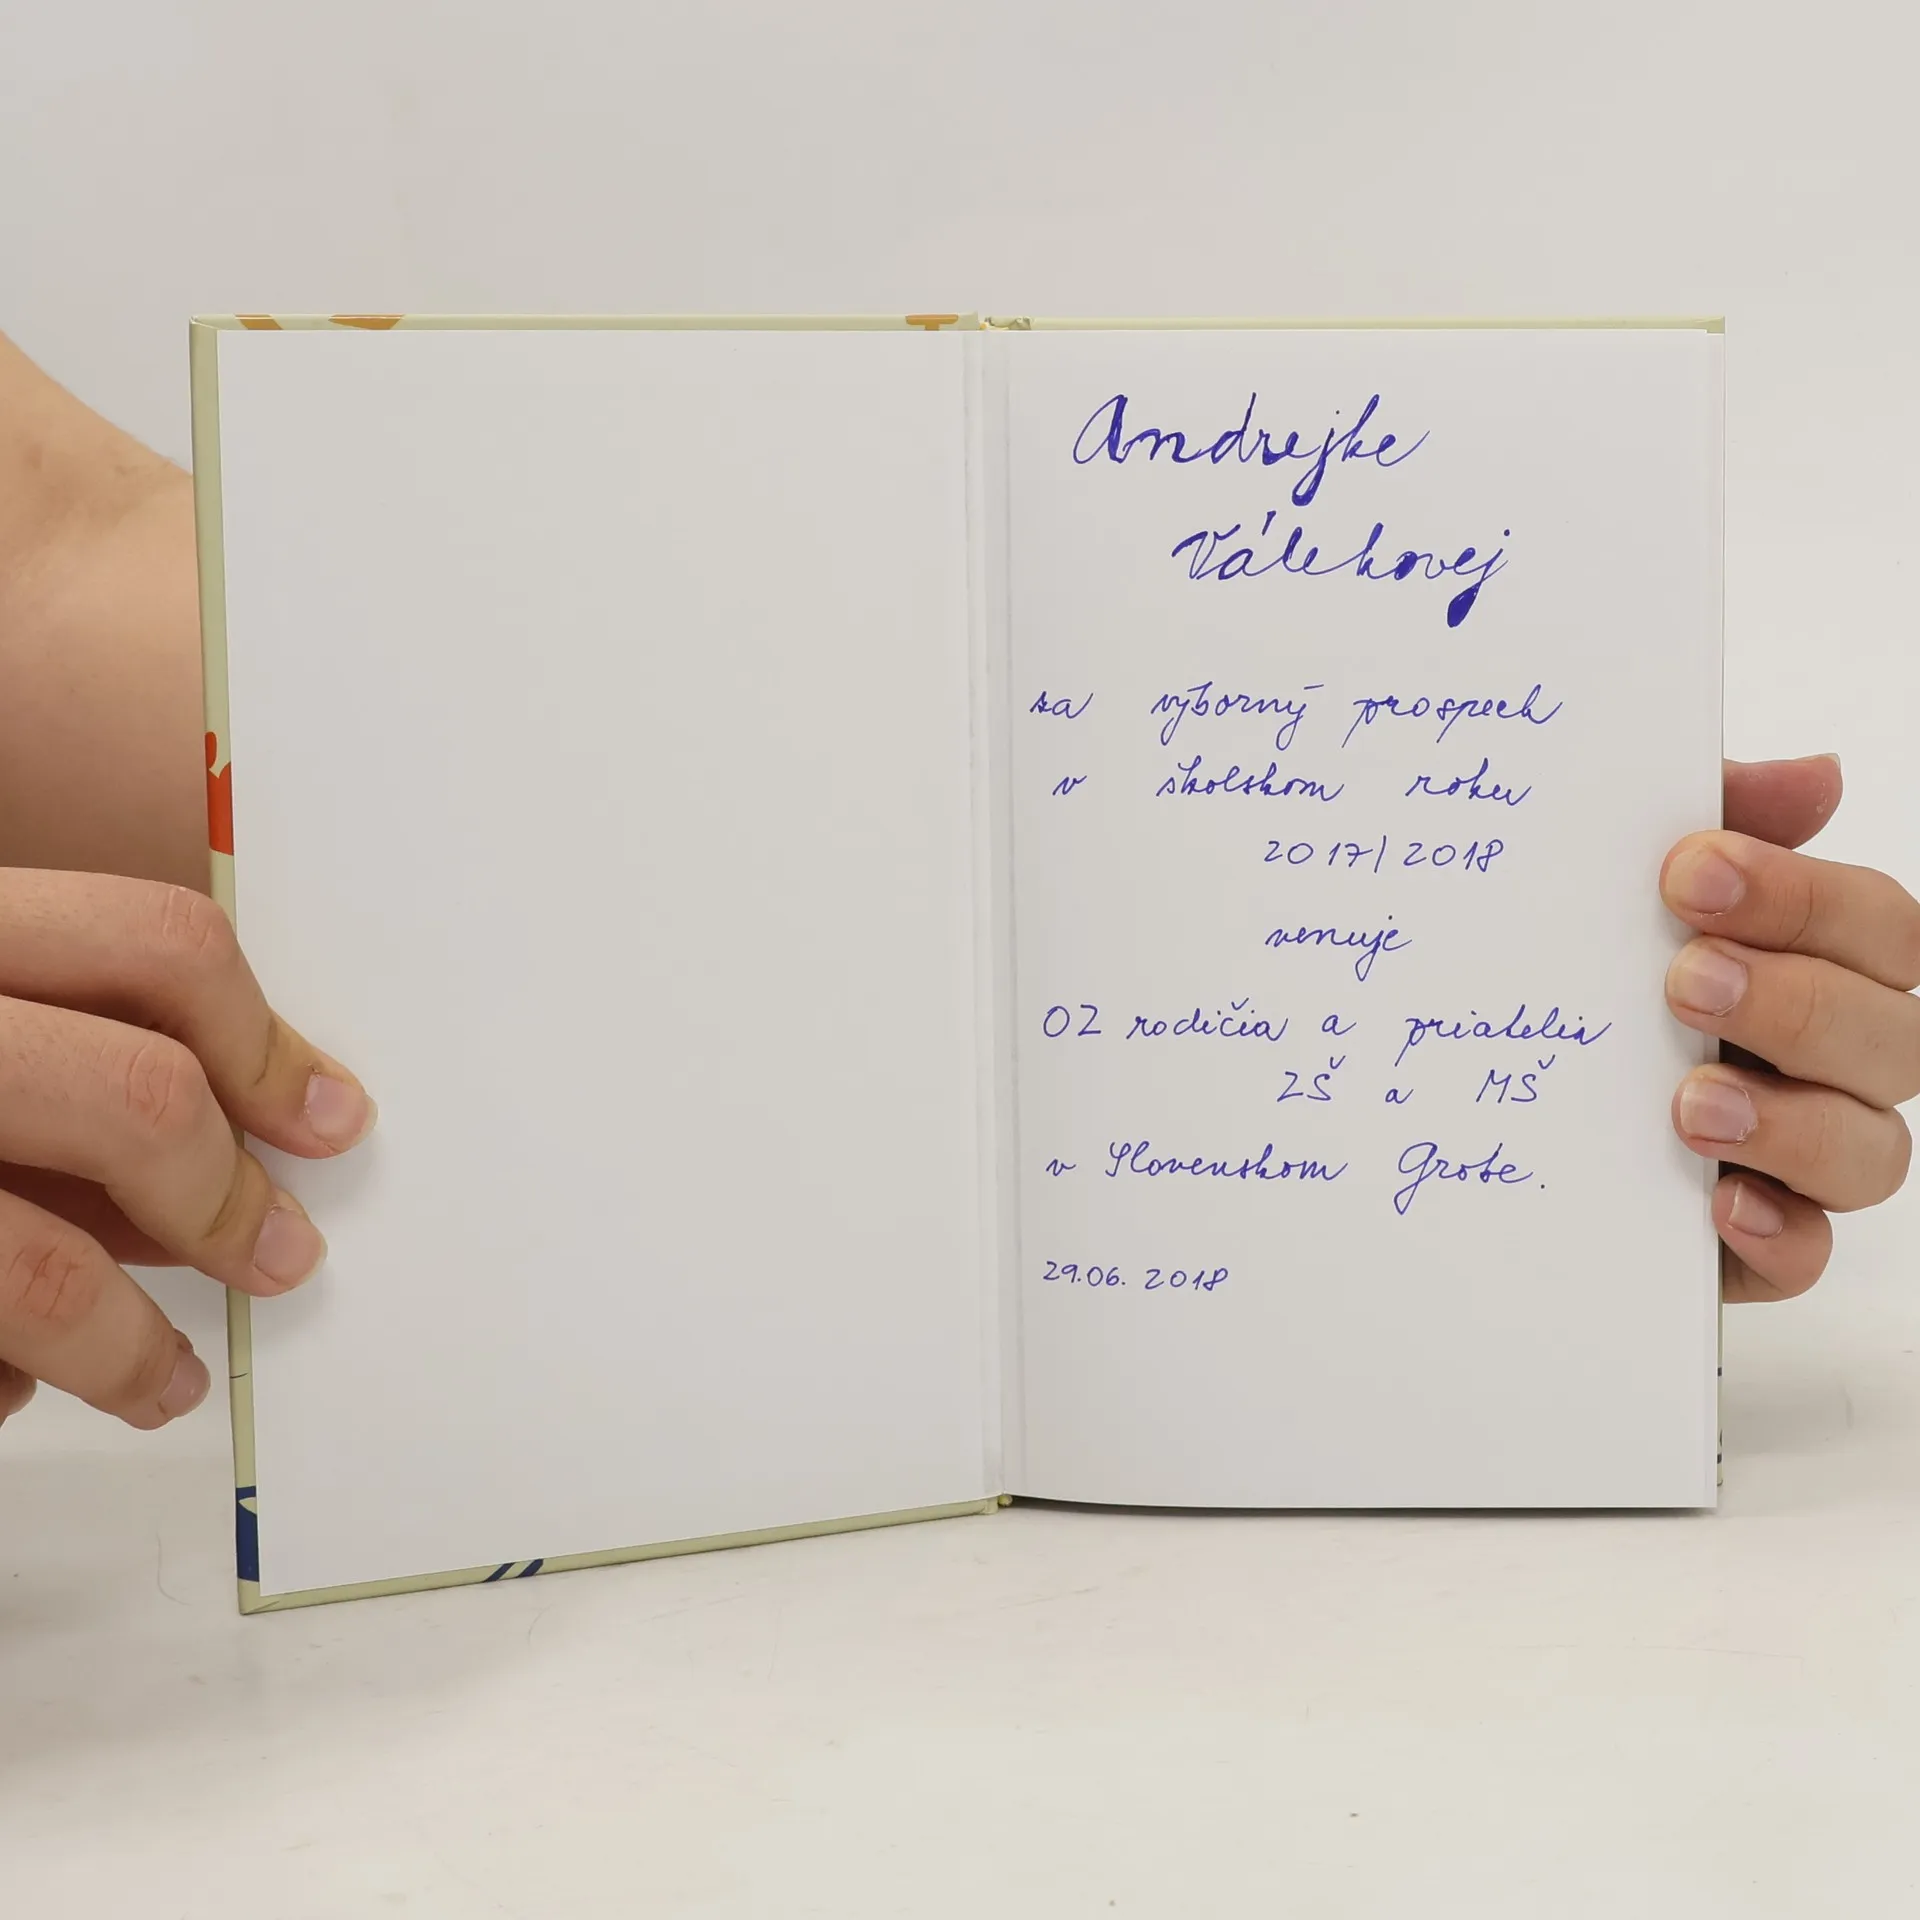 Andrejke
Válekovej
za výborný prospech
v školskom roku
2017/2018
venuje
OZ rodičia a priatelia
ZŠ a MŠ
v Slovenskom Grobe.
29.06. 2018